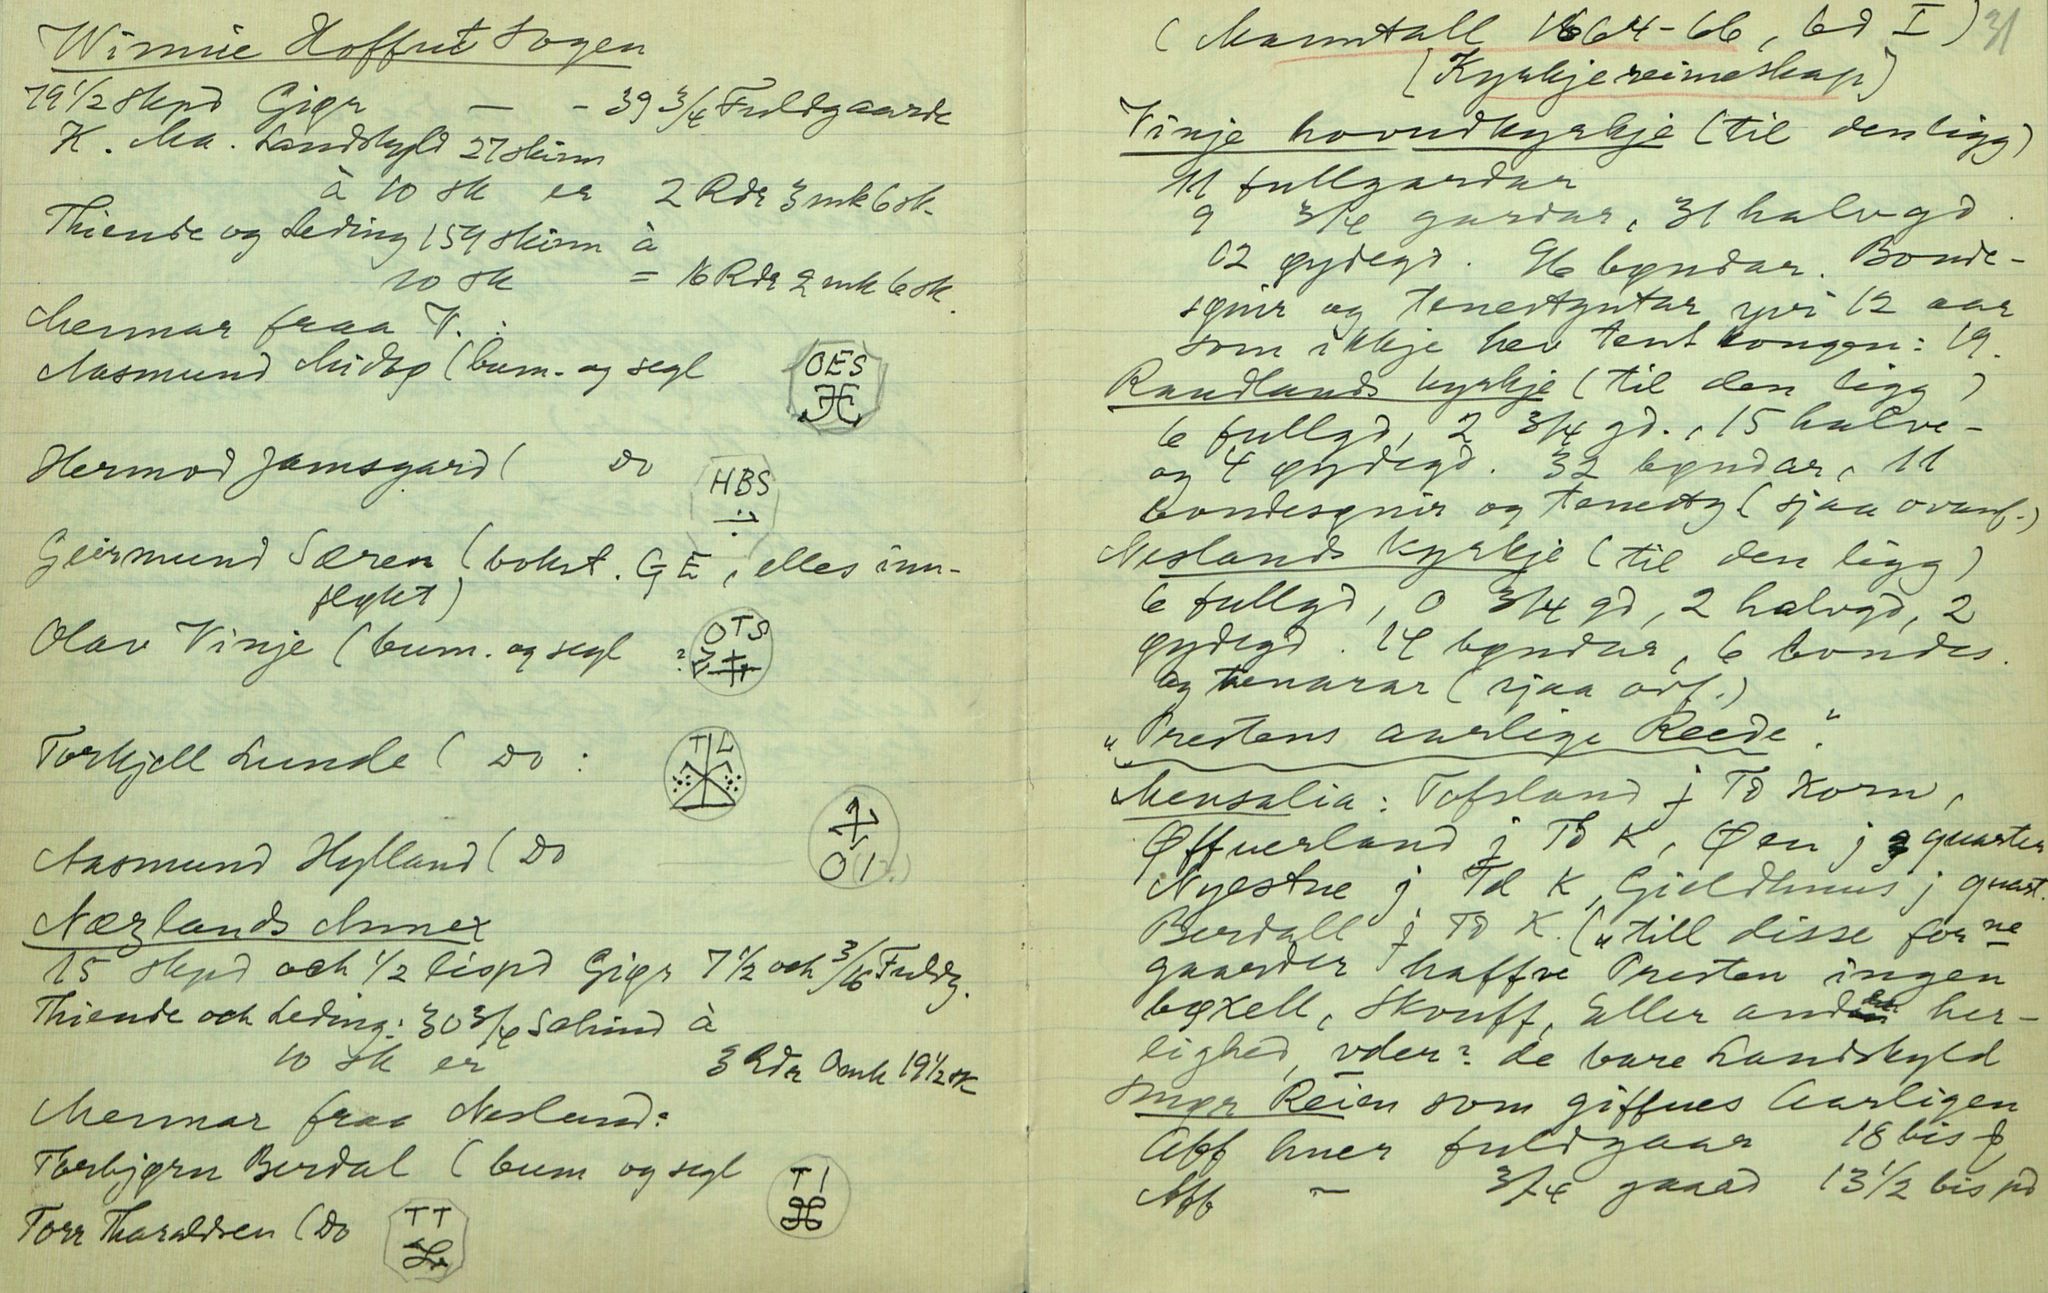 Winnie Hoffuet Sogen
79 1/2 Skpd Gior — - 39 3/4 Fuldgaarde
K. Ma. Landskyld 27 skinn
à 10 sk er 2 Rdr 3 mk 6 sk.
Thiende og Leding 159 skinn à
10 sk = 16 Rdr 2 mk 6 sk.
Mennar fraa V. :
Aasmund Midbø (bum. og segl
OES
Hermod Jamsgard ( Do
HBS
Geirmund Særen (bokst. G E, elles inn-
flykt)
Olav Vinje (bum. og segl
? OTS
Torkjell Lunde ( Do :
TL
Aasmund Hylland ( Do
OI
Næzlands Annex
15 Skpd och 1/2 lispd Giør 7 1/2 och 3/16 Fuldg.
Thiende och Leding: 30 3/4 Schind à
10 sk er 3 Rdr 0 mk 19 1/2 sk
Mennar fraa Nesland:
Thorbjørn Berdal (bum og segl
TI
Torr Tharaldsen (Do
TT
(Manntall 1664-66, bd I) 31
[Kyrkjereineskap]
Vinje hovudkyrkje (til den ligg)
11 fullgardar
9 3/4 gardar, 31 halvgd.
02 øydegd. 96 bøndar. Bonde-
sønir og tenestgutar yvi 12 aar
som ikkje hev tent kongen: 19.
Raudlands kyrkje (til den ligg)
6 fullgd, 2 3/4 gd., 15 halve-
og 4 øydegd. 32 bøndar, 11
bondesønir og tenestg (sjaa ovanf.)
Neslands kyrkje (til den ligg)
6 fullgd, 0 3/4 gd, 2 halvgd, 2
øydegd. 14 bøndar, 6 bondes.
og tenarar (sjaa ovf.)
"Prestens aarlige Reede".
Mensalia: Tofsland j Td Korn,
Øffuerland j Td K, Øen j quarter
Nyestue j Td K, Gieldhuus j quart.
Berdall j Td K. ("till disse forne
gaarder haffve Presten ingen
bøxell, Skouff, Eller anden her-
lighed, vder? de bare Landskyld
Smør Reien som giffues Aarligen
Aff huer fuldgaar 18 bis
Aff — 3/4 gaard 13 1/2 bis pd